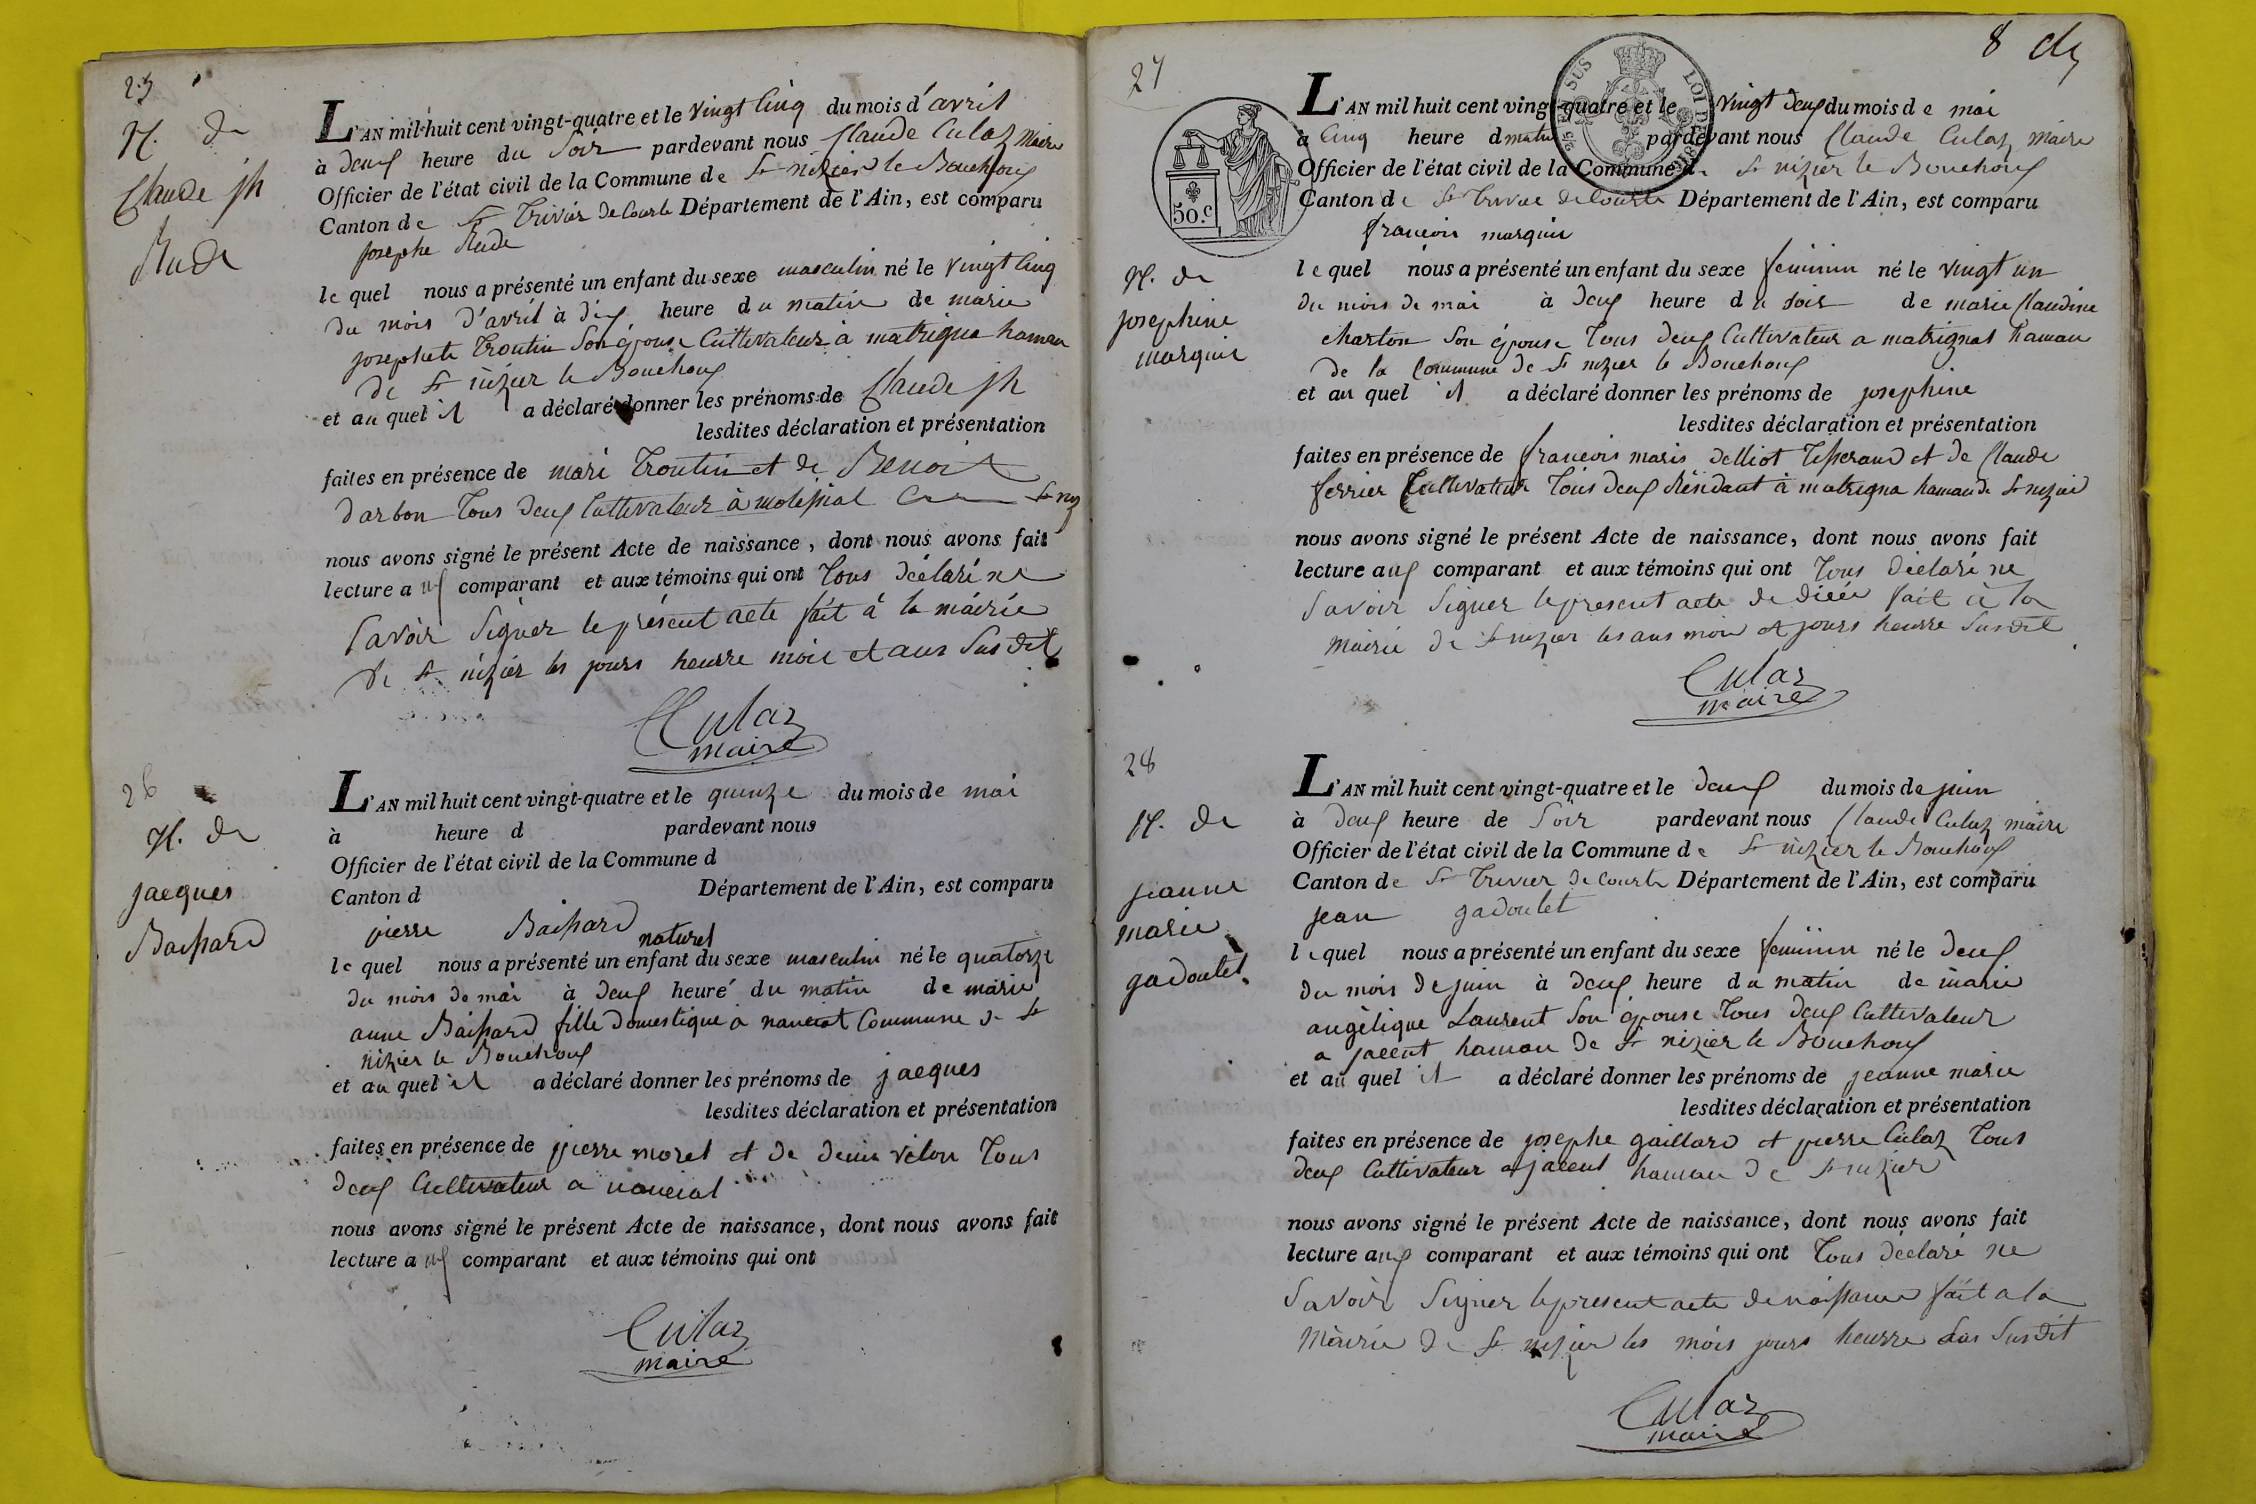 25
N. de
Claude jh
Rude
L'AN mil huit cent vingt-quatre et le vingt Cinq du mois d'avril
à deux heure du Soir pardevant nous Claude Culaz Maire
Officier de l'état civil de la Commune de St nizier le Bouchoux
Canton de St Trivier de Courte Département de l'Ain, est comparu
josephe Rude
le quel nous a présenté un enfant du sexe masculin né le vingt Cinq
du mois d'avril à dix heure du matin de marie
josephete Troutin Son épouse Cultivateur à matrigna hamau
de St nizier le Bouchoux
et au quel il a déclaré donner les prénoms de Claude jh
lesdites déclaration et présentation
faites en présence de mari Troutin et de Benoit
darbon Tous deux Cultivateur à molissial St niz
nous avons signé le présent Acte de naissance, dont nous avons fait
lecture aux comparant et aux témoins qui ont Tous déclaré ne
Savoir Signer le présent acte fait à la mairie
de St nizier les jours heurre mois et aur Sus dit
Culaz
maire
26
N. de
jacques
Baissard
L'AN mil huit cent vingt-quatre et le quinze du mois de mai
à heure d pardevant nous
Officier de l'état civil de la Commune d
Canton d Département de l'Ain, est comparu
pierre Baissard
naturel
le quel nous a présenté un enfant du sexe masculin né le quatorze
du mois de mai à deux heure du matin de marie
anne Baissard fille domestique a nanciat Commune de St
nizier le Bouchoux
et au quel il a déclaré donner les prénoms de jacques
lesdites déclaration et présentation
faites en présence de pierre morel et de denis vélon Tous
deux Cultivateur a nanciat
nous avons signé le présent Acte de naissance, dont nous avons fait
lecture aux comparant et aux témoins qui ont
Culaz
maire
8
27
50.c
N. de
josephine
marquis
L'AN mil huit cent vingt-quatre et le vingt deux du mois de mai
à Cinq heure d matin pardevant nous Claude Culaz maire
Officier de l'état civil de la Commune de St nizier le Bouchoux
Canton de St Trivier de Courte Département de l'Ain, est comparu
francois marquis
le quel nous a présenté un enfant du sexe feminin né le vingt un
du mois de mai à deux heure du soir de marie Claudine
charton Son épouse Tous deux Cultivateur a matrignat hamau
de la Commune de St nizier le Bouchoux
et au quel il a déclaré donner les prénoms de josephine
lesdites déclaration et présentation
faites en présence de francois maris delliot Tisserand et de Claude
ferrier Cultivateur Tous deux Résidant à matrigna hamau de St nizier
nous avons signé le présent Acte de naissance, dont nous avons fait
lecture aux comparant et aux témoins qui ont Tous déclaré ne
Savoir Signer le present acte de fait à la
mairie de St nizier les ans mois et jours heurre Susdit
Culaz
maire
28
N. de
jeanne
marie
gadoulet
L'AN mil huit cent vingt-quatre et le deux du mois de juin
à deux heure de Soir pardevant nous Claude Culaz maire
Officier de l'état civil de la Commune de St nizier le Bouchoux
Canton de St Trivier de Courte Département de l'Ain, est comparu
jean gadoulet
le quel nous a présenté un enfant du sexe feminin né le deux
du mois de juin à deux heure du matin de marie
angélique Laurent Son épouse Tous deux Cultivateur
a jacent hamau de St nizier le Bouchoux
et au quel il a déclaré donner les prénoms de jeanne marie
lesdites déclaration et présentation
faites en présence de josephe gaillard et pierre Culaz Tous
deux Cultivateur a jacent hamau de St nizier
nous avons signé le présent Acte de naissance, dont nous avons fait
lecture aux comparant et aux témoins qui ont Tous déclaré ne
Savoir Signer le present acte de naissance fait a la
Mairie de St nizier les mois jours heurre Susdit
Culaz
maire